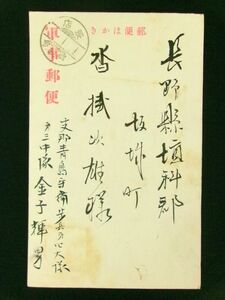 郵便はかき
長野縣埴科郡
坂城町
沓掛 雄様
軍事郵便
支那青島守備歩兵 大隊
第三中隊 金子輝男